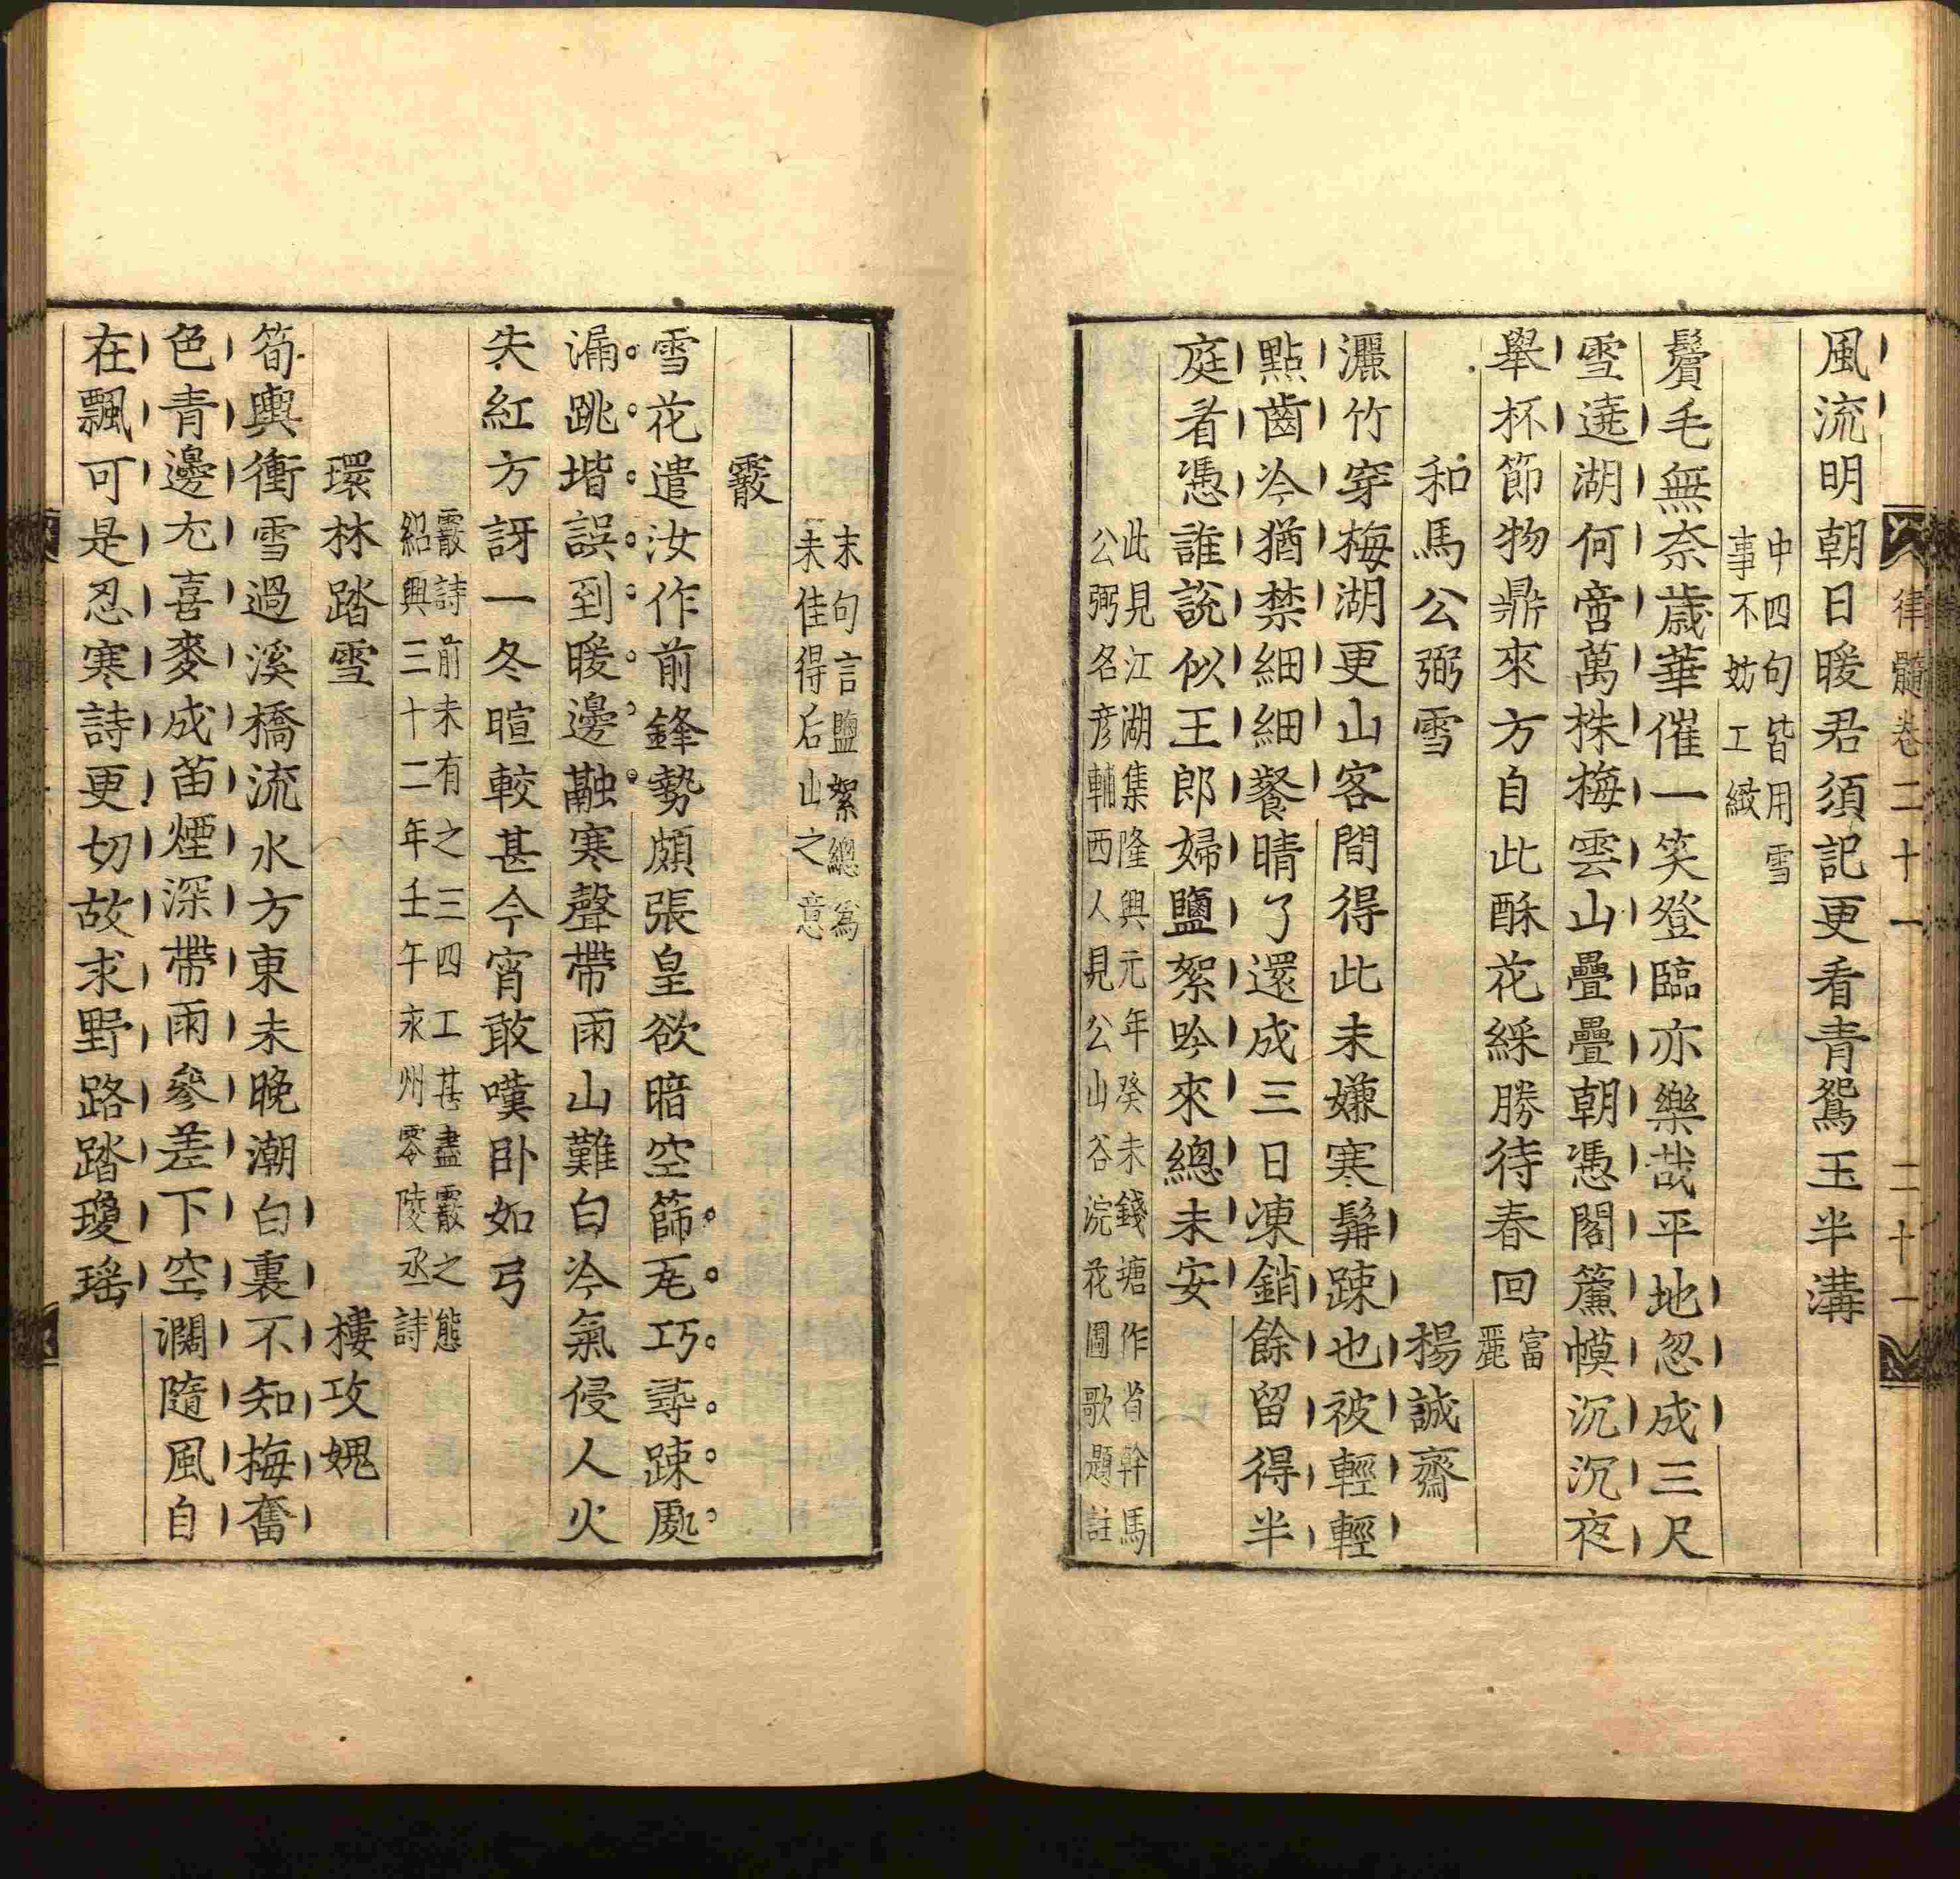 律髓卷二十一
二十一
風流明朝日暖君須記更看青鴛玉半溝
中四句皆用雪
事不妨工緻
鬢毛無奈歲華催一笑登臨亦樂哉平地忽成三尺
雪遶湖何啻萬株梅雲山疊疊朝憑閣簾幙沉沉夜
舉杯節物鼎來方自此酥花綵勝待春回
富
麗
和馬公弼雪
楊誠齋
灑竹穿梅湖更山客間得此未嫌寒髯踈也被輕輕
點齒冷猶禁細細餐晴了還成三日凍銷餘留得半
庭看憑誰說似王郎婦鹽絮吟來總未安
此見江湖集隆興元年癸未錢塘作省幹馬
公弼名彦輔西人見公山谷浣花圖歌題註
末句言鹽絮總爲
未佳得后山之意
霰
雪花遣汝作前鋒勢頗張皇欲暗空篩瓦巧尋踈處
漏跳堦誤到暖邊融寒聲帶雨山難白冷氣侵人火
失紅方訝一冬暄較甚今宵敢嘆卧如弓
霰詩前未有之三四工甚盡霰之態
紹興三十二年壬午永州零陵丞詩
環林踏雪
樓攻媿
筍輿衝雪過溪橋流水方東未晚潮白裏不知梅奮
色青邊尢喜麥成苗煙深帶雨參差下空濶隨風自
在飄可是忍寒詩更切故求野路踏瓊瑶